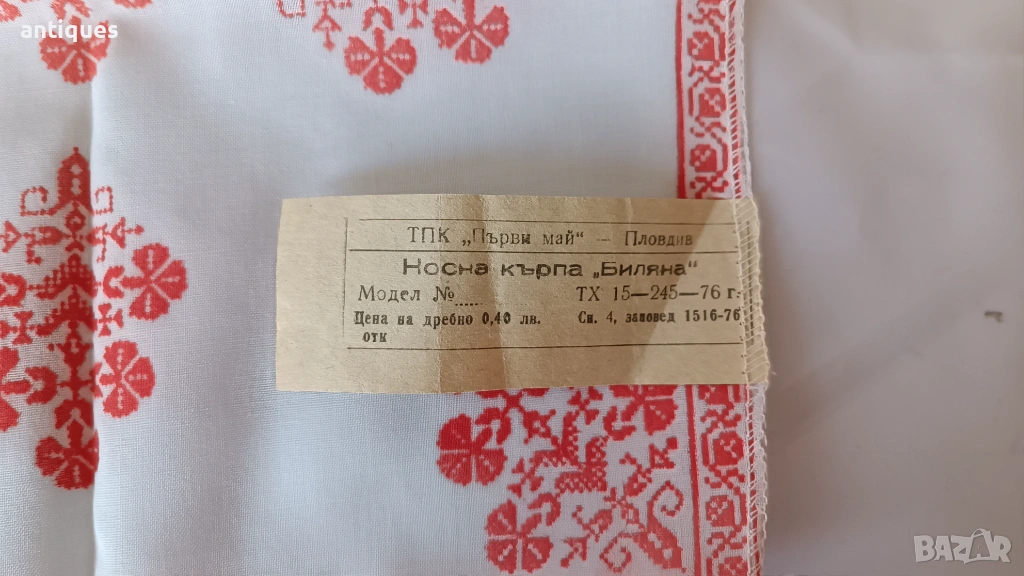 mom4eto_
antiques
ТПК „Първи май“ — Пловдив
Носна кърпа „Биляна“
Модел №.... ТХ 15—245—76 г.
Цена на дребно 0,40 лв. Сп. 4, заповед 1516-76
отк
BAZAR